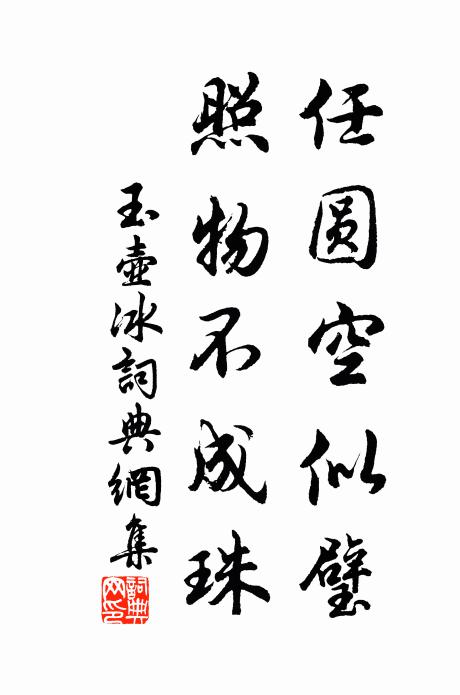 任圓空似璧
照物不成珠
玉壺冰詞典網集
詞典網印